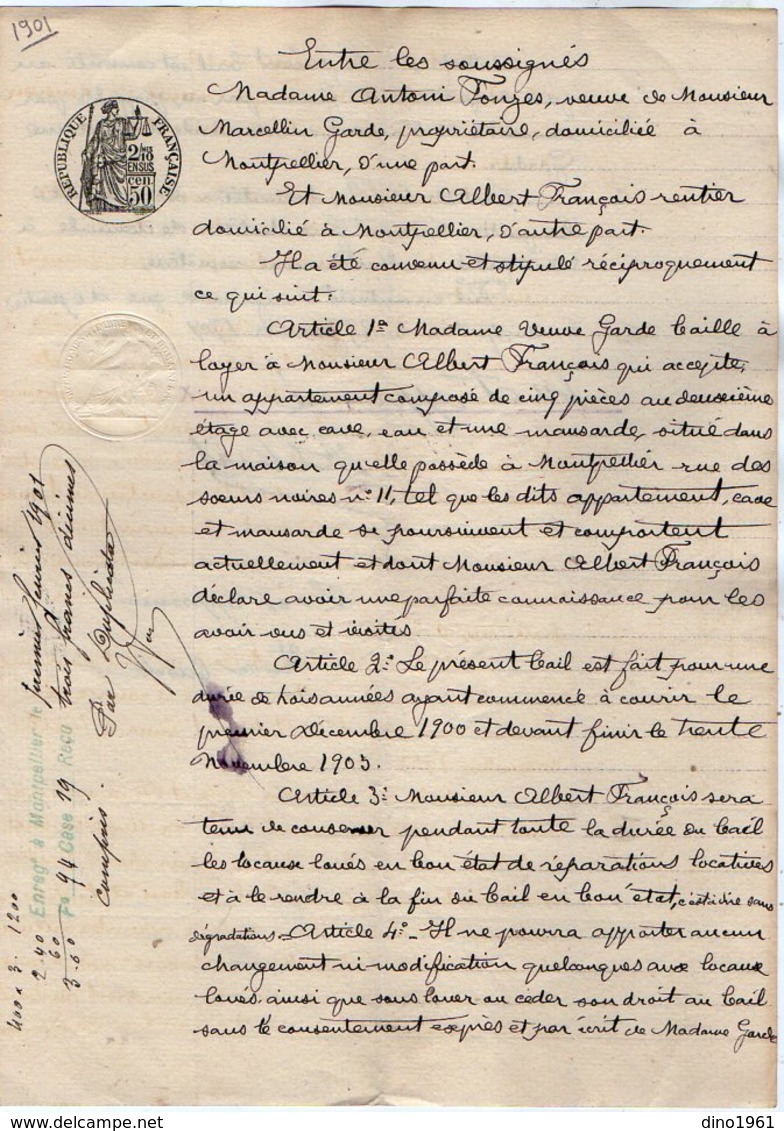 1901
Entre les soussignés
Madame Antoni Fonzes, veuve de Monsieur
Marcellin Garde, propriétaire, domiciliée à
Montpellier, d'une part.
Et Monsieur Albert François rentier
domicilié à Montpellier, d'autre part.
Il a été convenu et stipulé réciproquement
ce qui suit:
Article 1er Madame Veuve Garde baille à
loyer à Monsieur Albert François qui accepte,
un appartement composé de cinq pièces au deuxième
étage avec cave, eau et une mansarde, situé dans
la maison qu'elle possède à Montpellier rue des
soeurs noires n° 11, tel que les dits appartement, cave
et mansarde se poursuivent et comportent
actuellement et dont Monsieur Albert François
déclare avoir une parfaite connaissance pour les
avoir vus et visités.
Article 2° Le présent bail est fait pour une
durée de trois années ayant commencé à courir le
premier Décembre 1900 et devant finir le trente
Novembre 1903.
Article 3° Monsieur Albert François sera
tenu de conserver pendant toute la durée du bail
les locaux loués en bon état de réparations locatives
et à le rendre à la fin du bail en bon état, c'est à dire sans
dégradations. Article 4° Il ne pourra apporter aucun
changement ni modification quelconques aux locaux
loués, ainsi que sous louer ou céder son droit au bail
sans le consentement exprès et par écrit de Madame Garde
RÉPUBLIQUE FRANÇAISE
2/10 EN SUS
50 cen
Enregé à Montpellier le premier Janvier 1901
Fo 94 Case 19 Reçu trois francs décimes
compris. Par Duplicata
400 x 3. 1200
2.40
60
3.60
dino1961